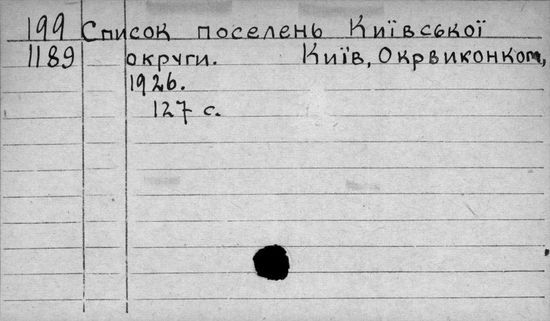 199 Список поселень Київської
1189 округи. Київ, Окрвиконком,
1926.
127 с.